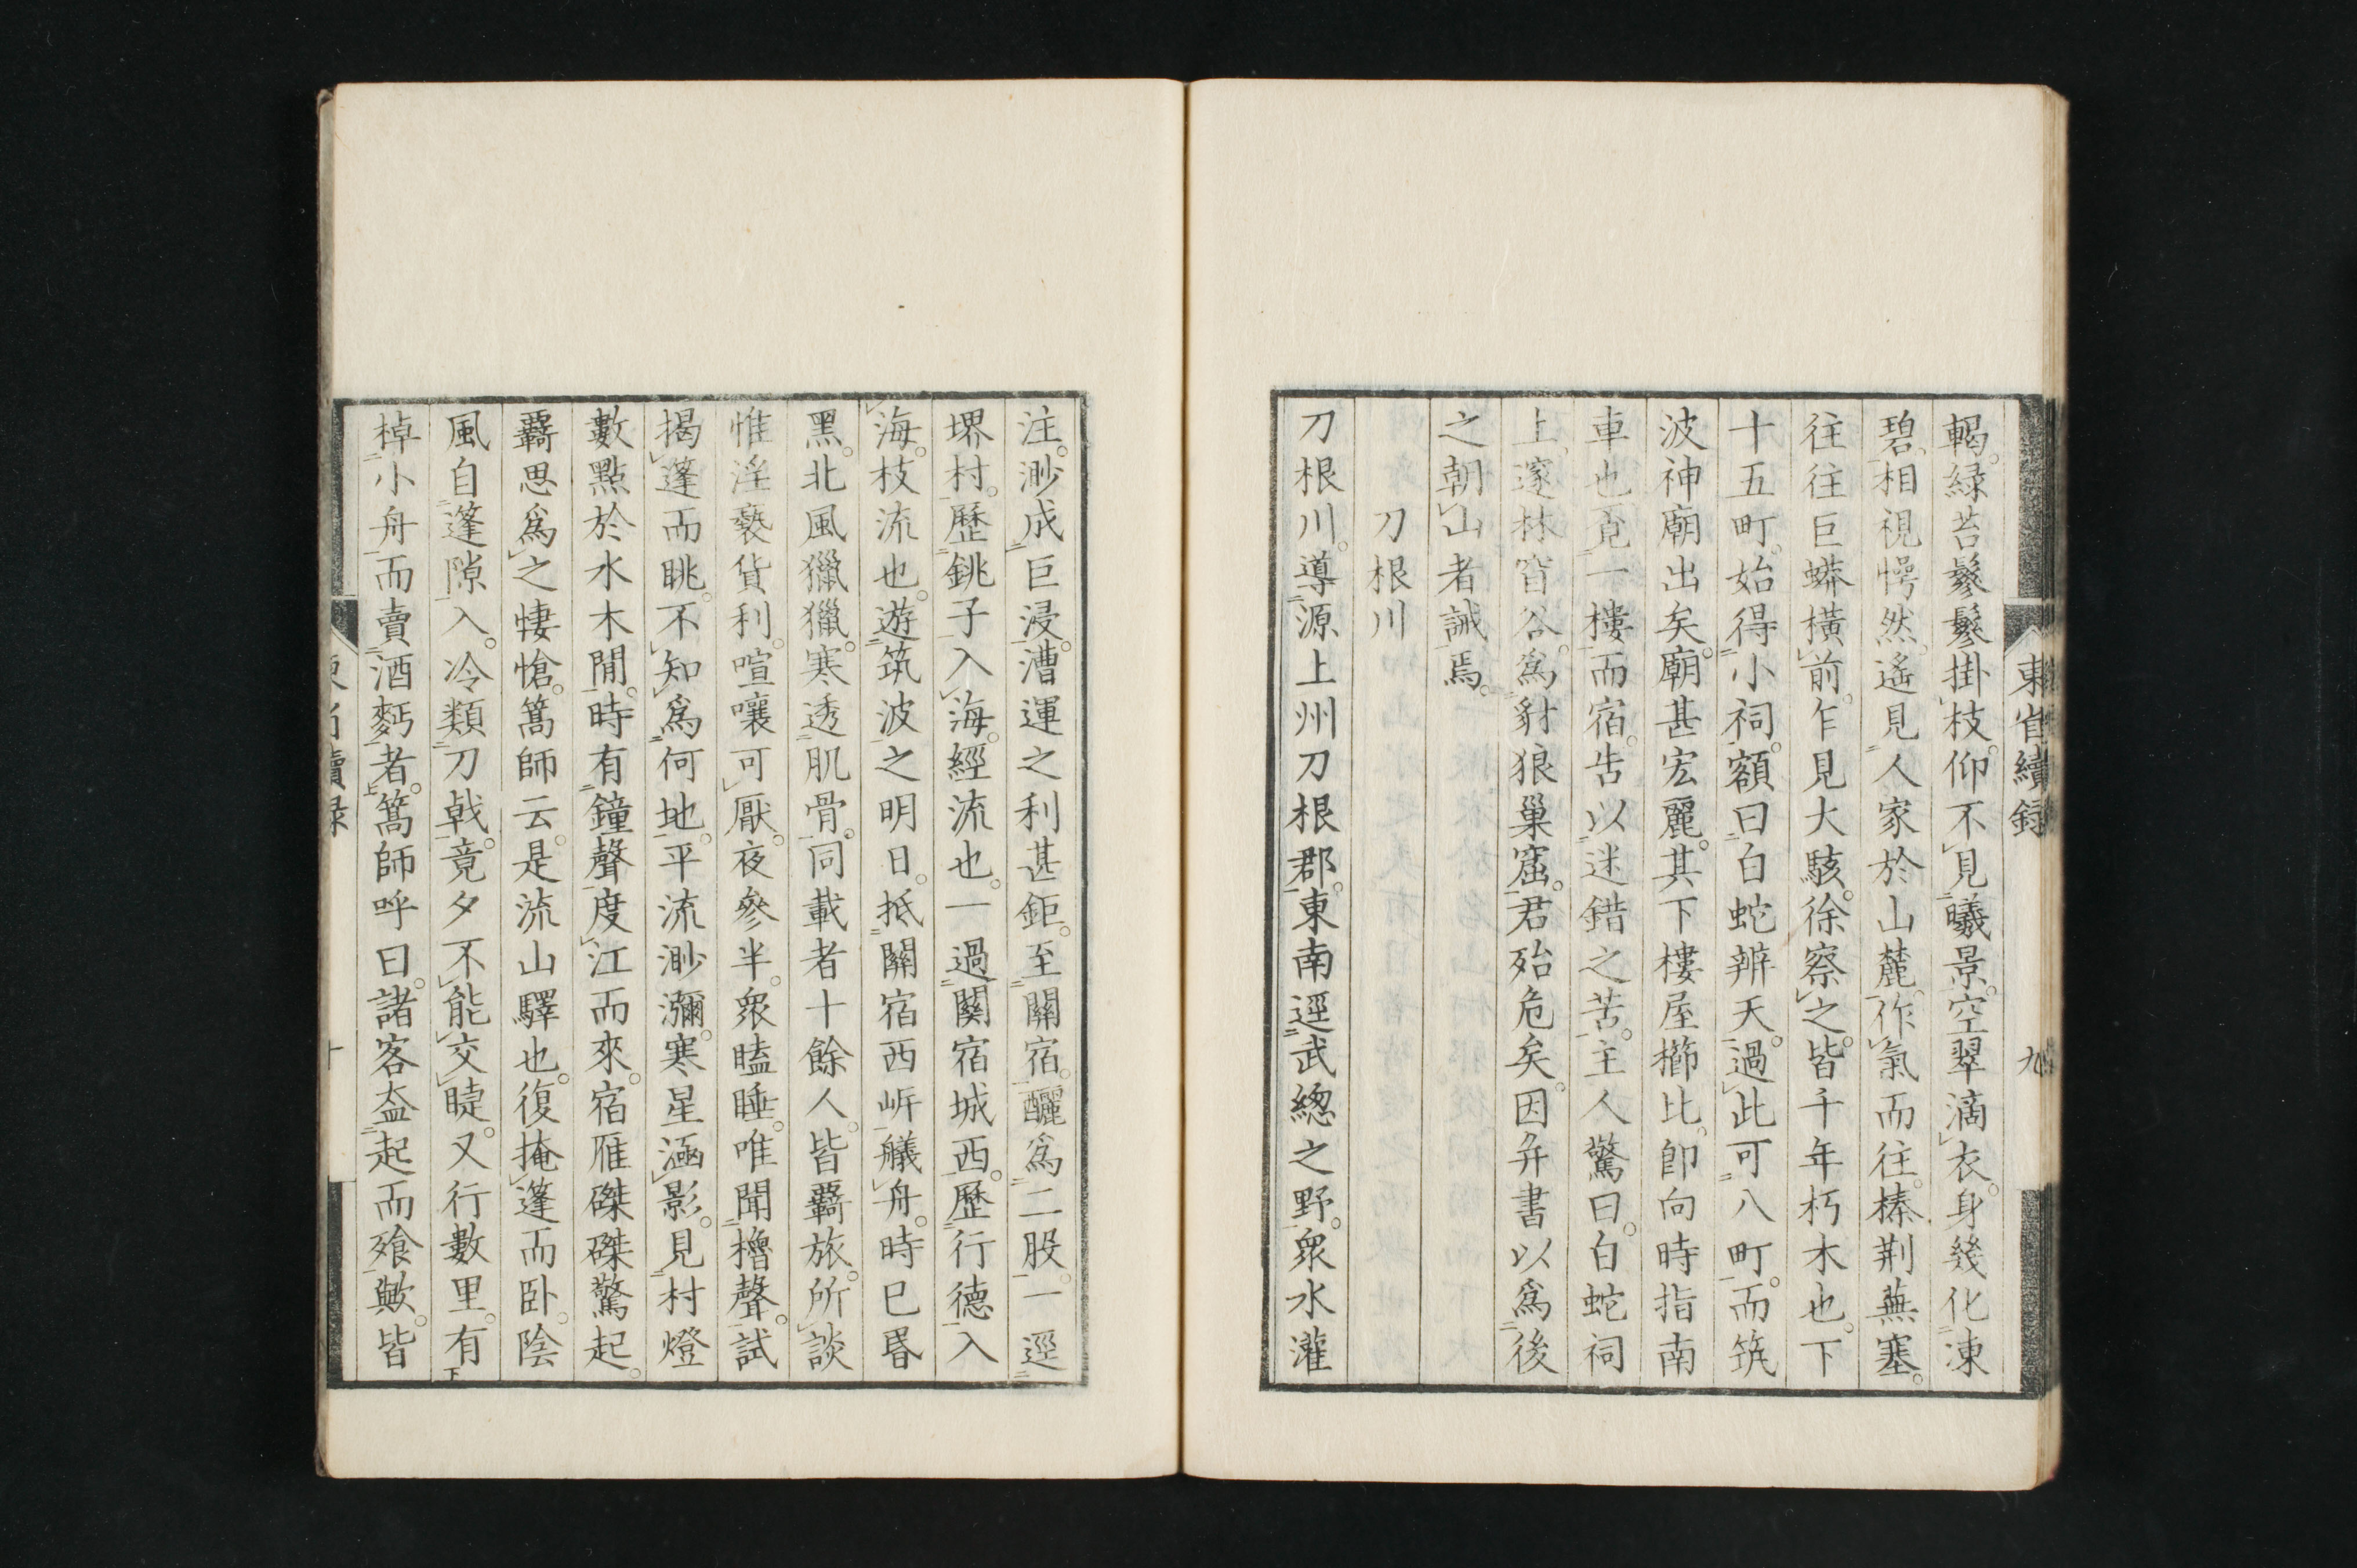 東省續錄
九
輵。緑苔鬖鬖掛枝。仰不見曦景。空翠滴衣。身幾化凍
碧。相視愕然。遙見人家於山麓。作氣而往。榛荆蕪塞。
往往巨蟒橫前。乍見大駭。徐察之。皆千年朽木也。下
十五町。始得小祠。額曰白蛇辨天。過此可八町。而筑
波神廟出矣。廟甚宏麗。其下樓屋櫛比。卽向時指南
車也。覓一樓而宿。告以迷錯之苦。主人驚曰。白蛇祠
上。邃林窅谷。爲豺狼巢窟。君殆危矣。因弁書以爲後
之朝山者誡焉。
刀根川
刀根川。導源上州刀根郡。東南逕武總之野。衆水灌
注。渺成巨浸。漕運之利甚鉅。至關宿。釃爲二股。一逕
堺村。歷銚子入海。經流也。一過關宿城西。歷行德入
海。枝流也。遊筑波之明日。抵關宿西岍艤舟。時巳昬
黑。北風獵獵。寒透肌骨。同載者十餘人。皆覊旅。所談
惟淫褻貨利。喧嚷可厭。夜參半。衆瞌睡。唯聞櫓聲。試
揭篷而眺。不知爲何地。平流渺瀰。寒星涵影。見村燈
數點於水木閒。時有鐘聲度江而來。宿雁磔磔驚起。
覊思爲之悽愴。篙師云。是流山驛也。復掩篷而臥。陰
風自篷隙入。冷類刀戟。竟夕不能交睫。又行數里。有
棹小舟而賣酒麪者。篙師呼曰。諸客盍起而飱歟。皆
續錄
十